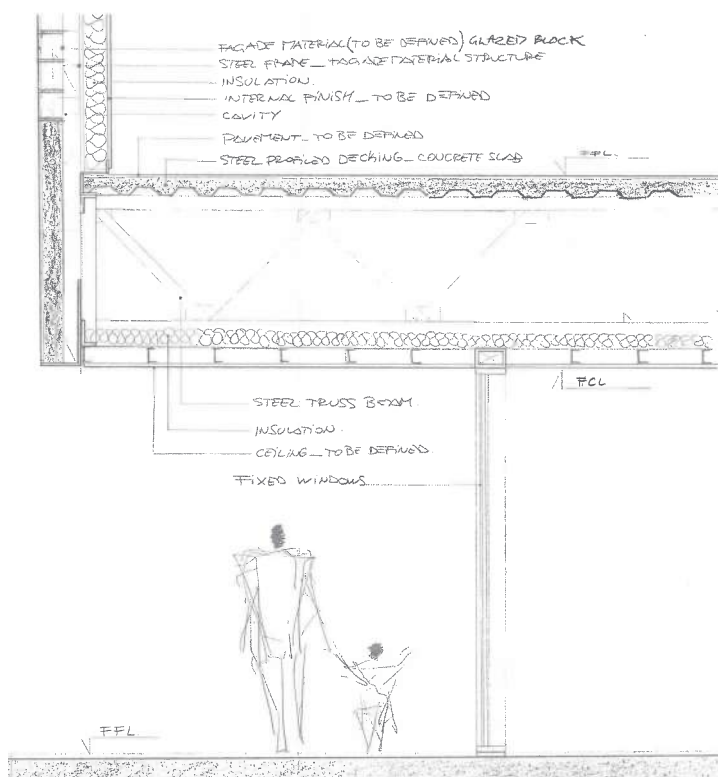 FAÇADE MATERIAL (TO BE DEFINED) GLAZED BLOCK
STEEL FRAME_FAÇADE MATERIAL STRUCTURE
INSULATION.
INTERNAL FINISH_TO BE DEFINED
CAVITY
PAVEMENT_TO BE DEFINED
STEEL PROFILED DECKING_CONCRETE SLAB
FFL.
FCL
STEEL TRUSS BEAM.
INSULATION.
CEILING_TO BE DEFINED.
FIXED WINDOWS
FFL.